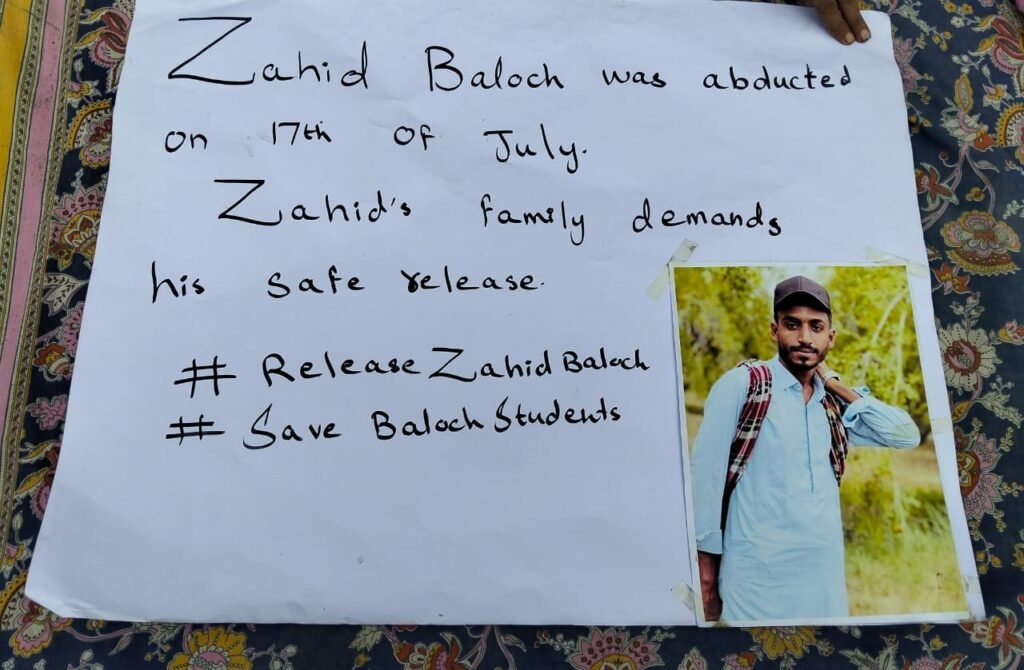 Zahid Baloch was abducted
on 17th of July.
Zahid's family demands
his safe release.
# Release Zahid Baloch
# Save Baloch Students